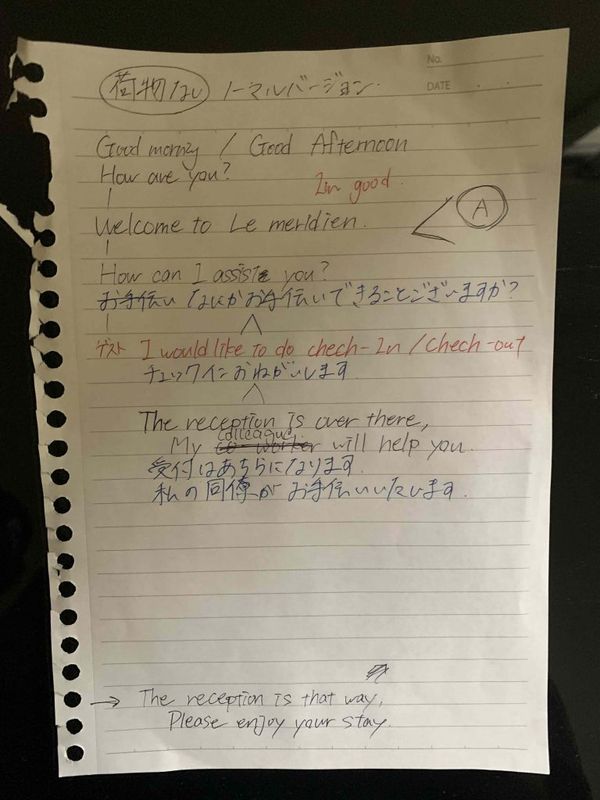 No.
DATE
荷物ない ノーマルバージョン
Good morning / Good Afternoon
How are you?
Im good.
Welcome to Le meridien.
A
How can I assist you?
お手伝い なにかお手伝いできることございますか?
ゲスト I would like to do chech-In / Chech-out
チェックインおねがいします
The reception is over there,
colleague
My co-worker will help you.
受付はあちらになります.
私の同僚がお手伝いいたします.
→ The reception is that way,
Please enjoy your stay.